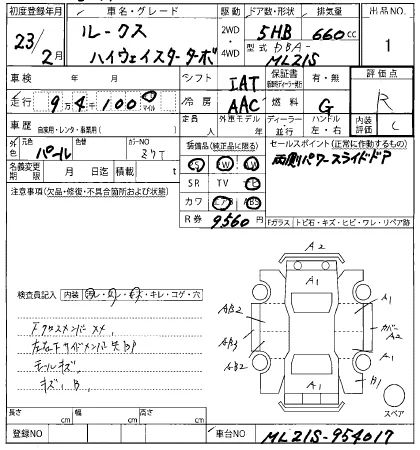 初度登録年月 車名・グレード 駆動 ドア数・形状 排気量 出品NO.
23/2月 ルークス ハイウェイスターターボ 2WD・4WD 5HB 660cc 1
型式 DBA-ML21S
車検 年 月 シフト IAT 保証書 有・無 評価点
走行 9万4千100 マイル 冷房 AAC 燃料 G R
車歴 自家用・レンタ・事業用( ) 定員 人 外車モデル 年 ディーラー 並行 ハンドル 左・右 内装評価 C
外色 元色 パール 色替 カラーNO
名義変更期限 月 日迄 積載 t
装備品(純正品に限る)
PS PW AW
SR TV ナビ
カワ エアB ABS
R券 9560円
セールスポイント(正常に作動するもの)
両側パワースライドドア
注意事項(欠品・修復・不具合箇所および状態)
Fガラス トビ石・キズ・ヒビ・ワレ・リペア跡
検査員記入 内装 汚レ・スレ・キズ・キレ・コゲ・穴
Fクロスメンバー
左右Fサイドメンバー先BP
モールキズ,
キズ, B,
A2
A1
AB2
AB3
AB2
A1
カバーA2
B1
A1
スペア
長さ cm 幅 cm 高さ cm
登録NO 車台NO ML21S-954017